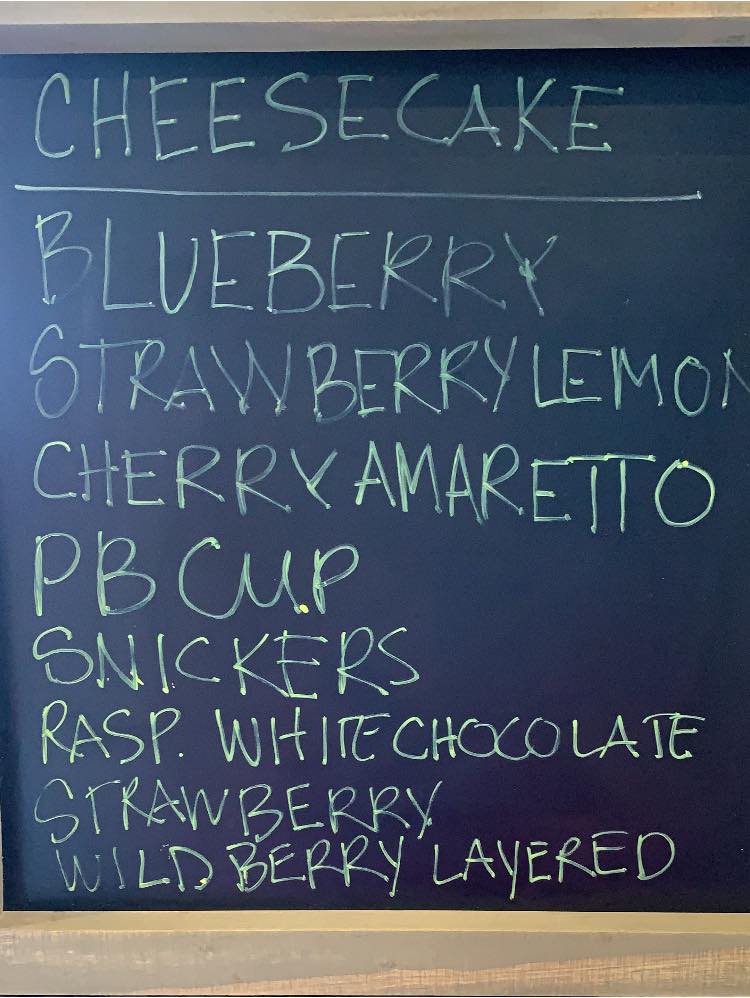 CHEESECAKE
BLUEBERRY
STRAWBERRY LEMON
CHERRY AMARETTO
PB CUP
SNICKERS
RASP. WHITE CHOCOLATE
STRAWBERRY
WILD BERRY LAYERED